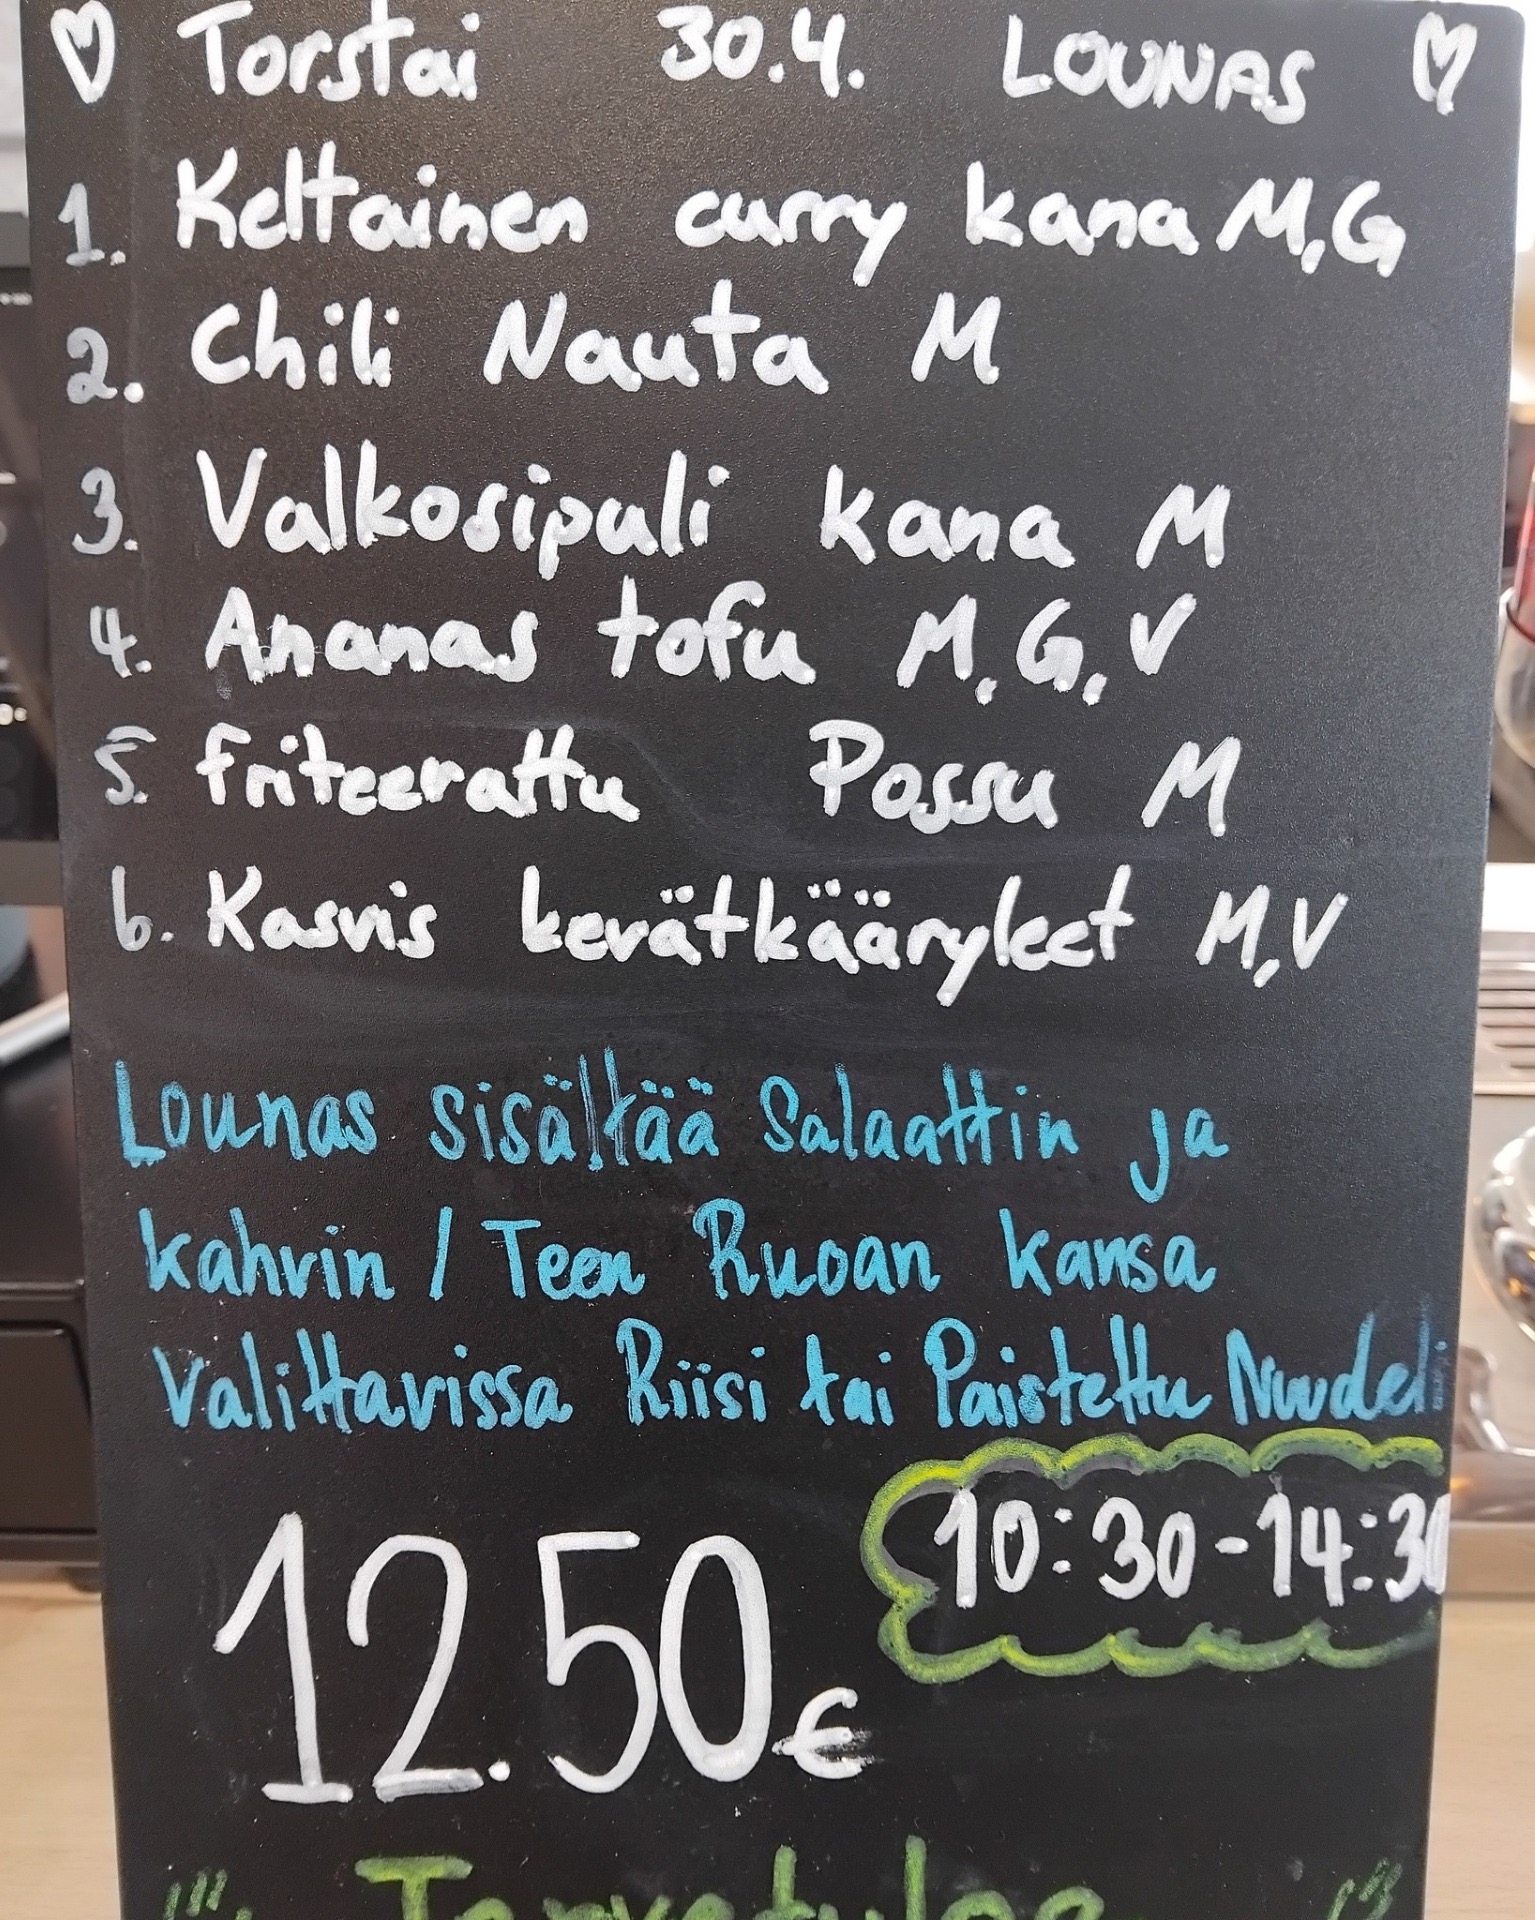 ♡ Torstai 30.4. LOUNAS ♡
1. Keltainen curry kana M,G
2. Chili Nauta M
3. Valkosipuli kana M
4. Ananas tofu M,G,V
5. friteerattu Possu M
6. Kasvis kevätkääryleet M,V
Lounas sisältää Salaattin ja
kahvin / Teen Ruoan kansa
Valittavissa Riisi tai Paistettu Nuudeli
10:30-14:30
12.50€
Tervetuloa